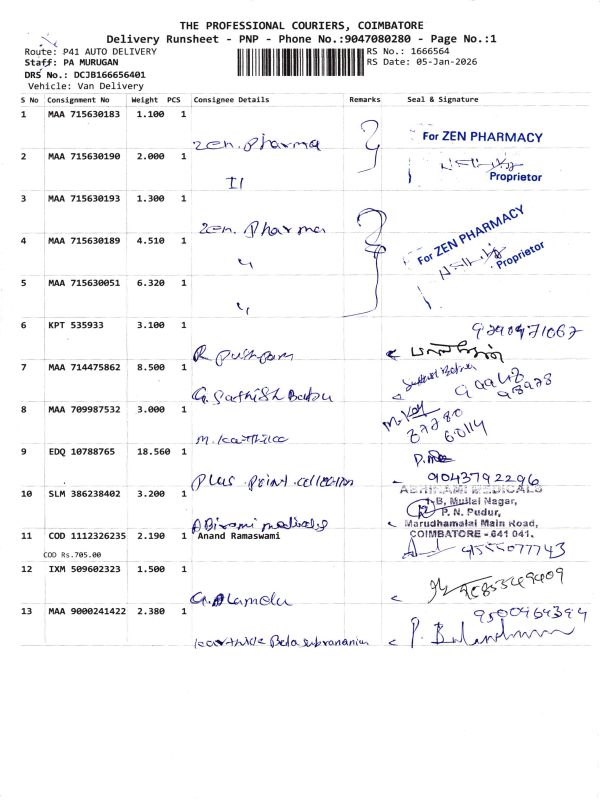 THE PROFESSIONAL COURIERS, COIMBATORE
Delivery Runsheet - PNP - Phone No.:9047080280 - Page No.:1
Route: P41 AUTO DELIVERY
RS No.: 1666564
Staff: PA MURUGAN
RS Date: 05-Jan-2026
DRS No.: DCJB166656401
Vehicle: Van Delivery
S No Consignment No Weight PCS Consignee Details Remarks Seal & Signature
1 MAA 715630183 1.100 1
Zen. Pharma
For ZEN PHARMACY
Proprietor
2 MAA 715630190 2.000 1
II
3 MAA 715630193 1.300 1
Zen. Pharma
For ZEN PHARMACY
Proprietor
4 MAA 715630189 4.510 1
"
5 MAA 715630051 6.320 1
"
6 KPT 535933 3.100 1
R pushpam
7 MAA 714475862 8.500 1
G. Sathish Babu
8 MAA 709987532 3.000 1
M. Karthika
9 EDQ 10788765 18.560 1
Plus Point collection
9043792296
10 SLM 386238402 3.200 1
Abirami medicals
ABHIRAMI MEDICALS
B, Mullai Nagar,
P. N. Pudur,
Marudhamalai Main Road,
COIMBATORE - 641 041.
11 COD 1112326235 2.190 1 Anand Ramaswami
COD Rs.705.00
12 IXM 509602323 1.500 1
G. Alamelu
13 MAA 9000241422 2.380 1
Karthick Balasubramanian